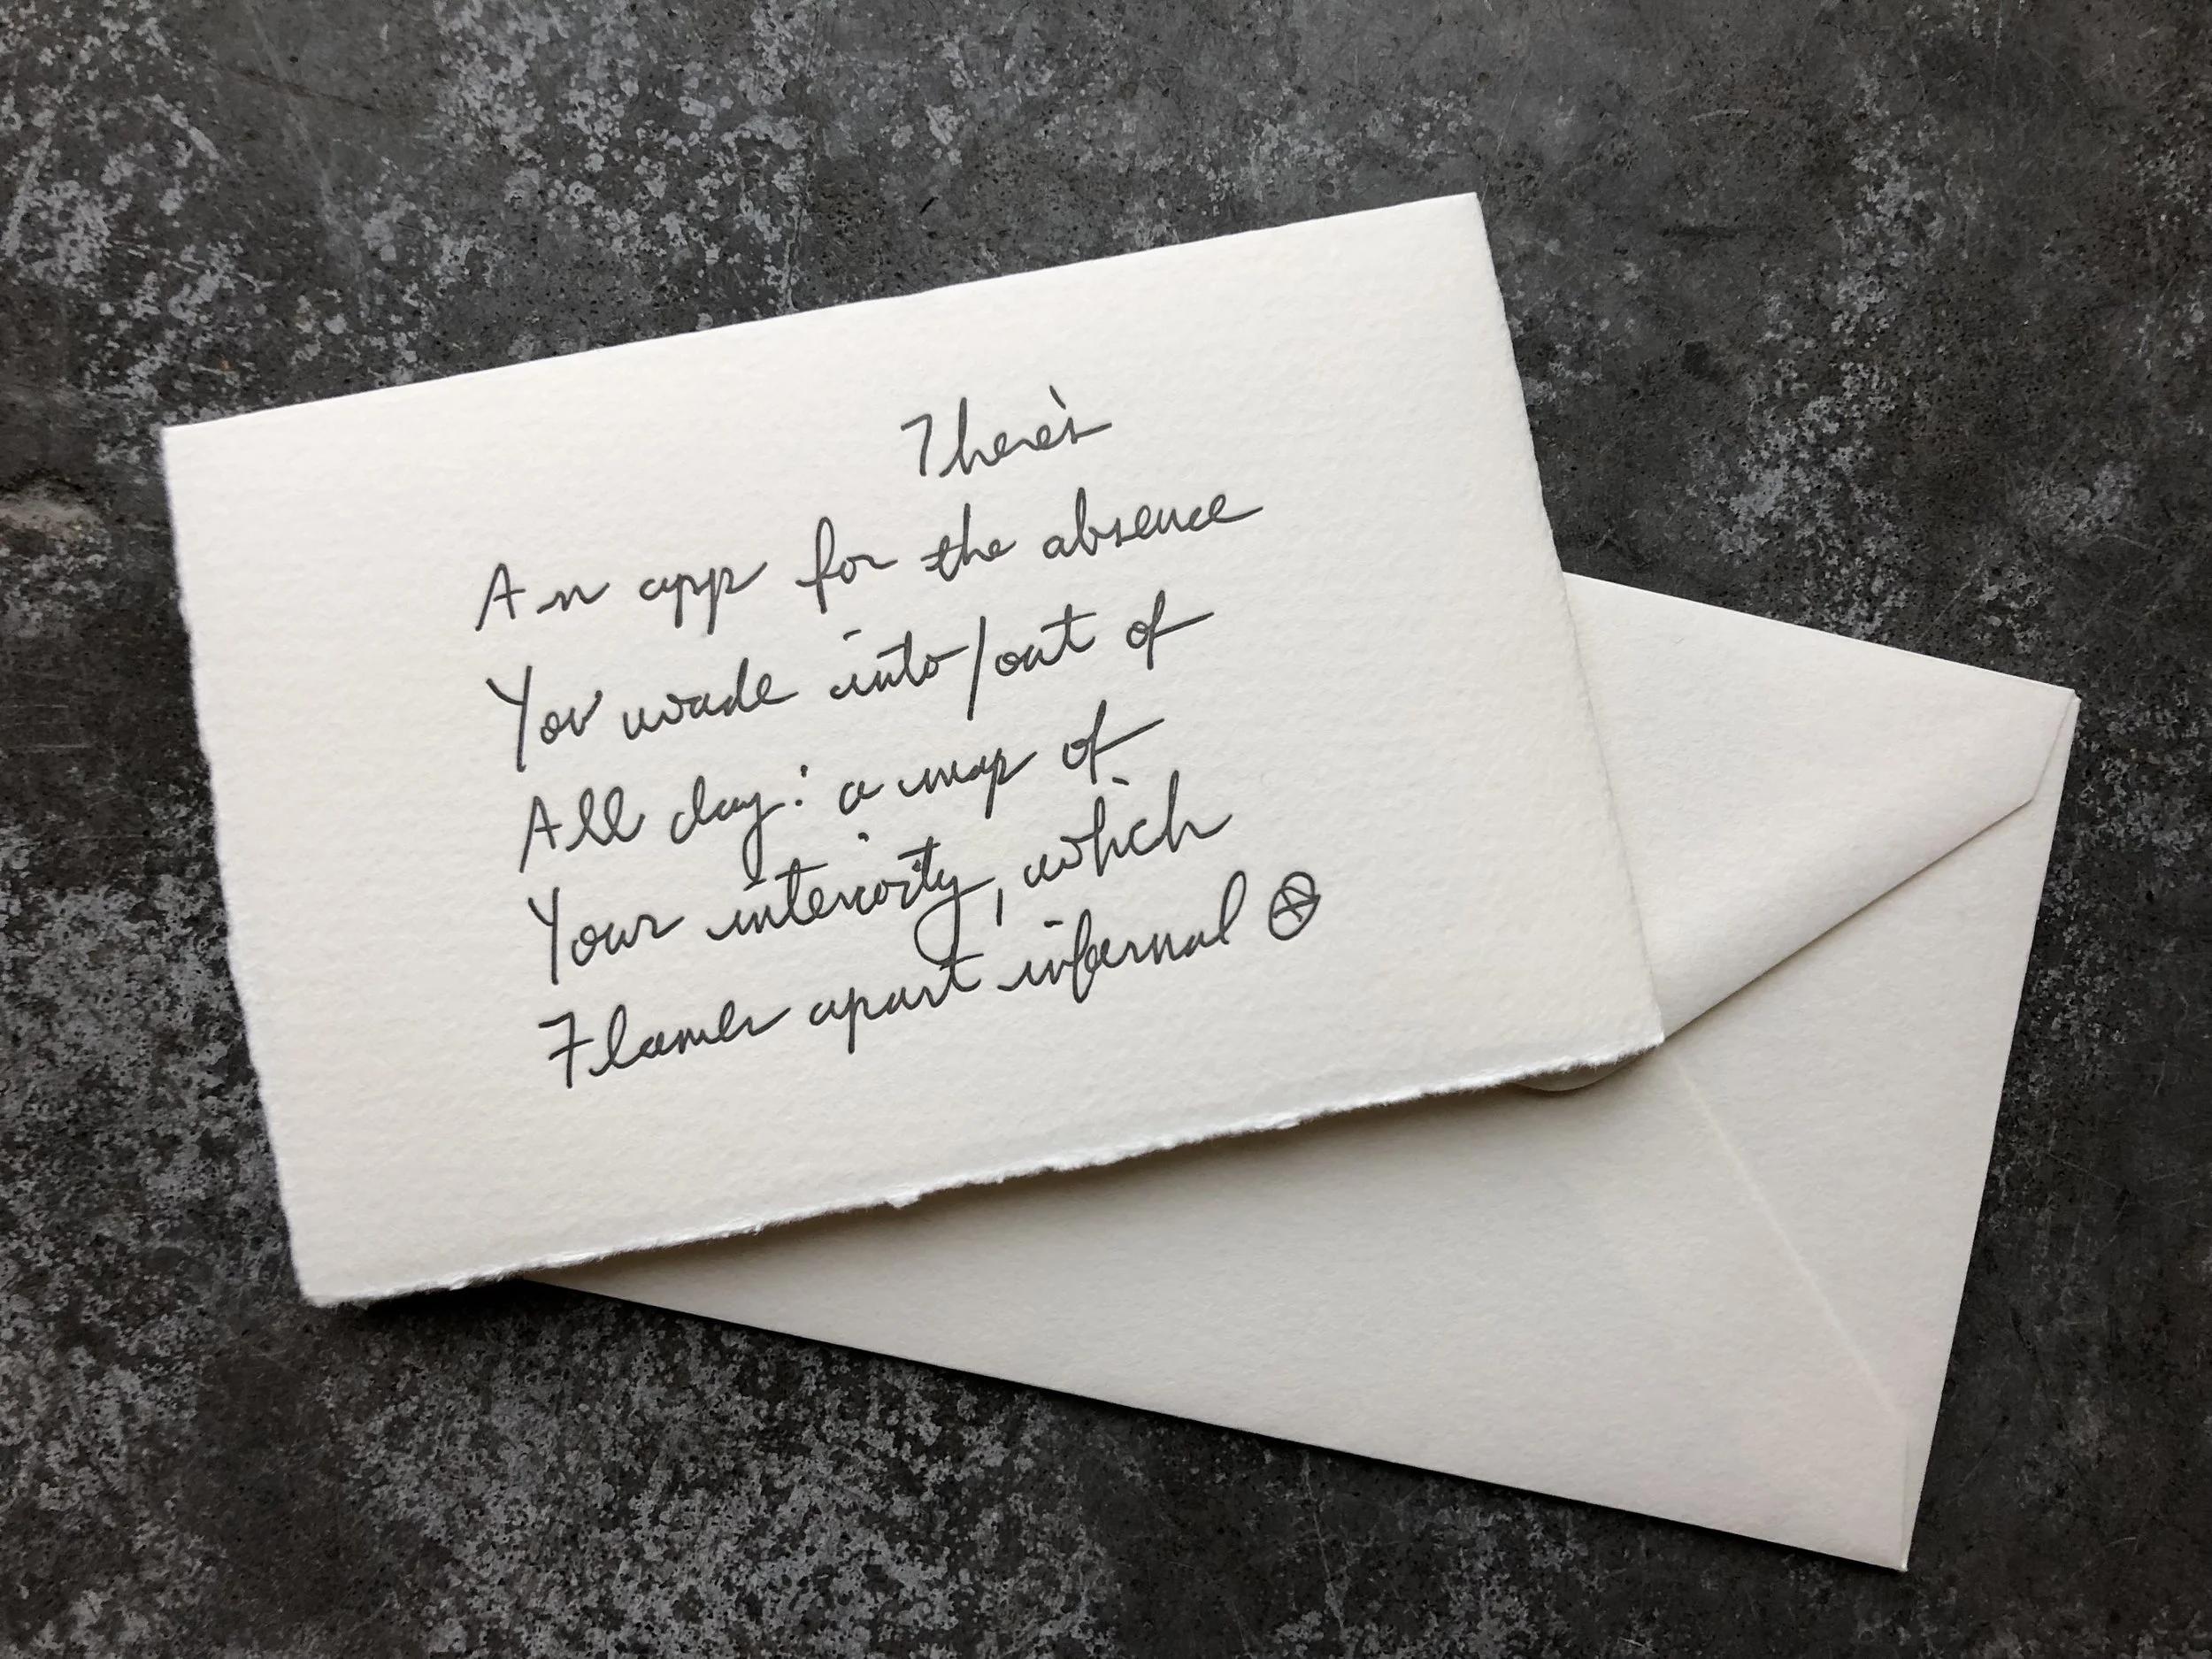 There's
An app for the absence
You wade into/out of
All day: a map of
Your interiority, which
Flames apart infernal